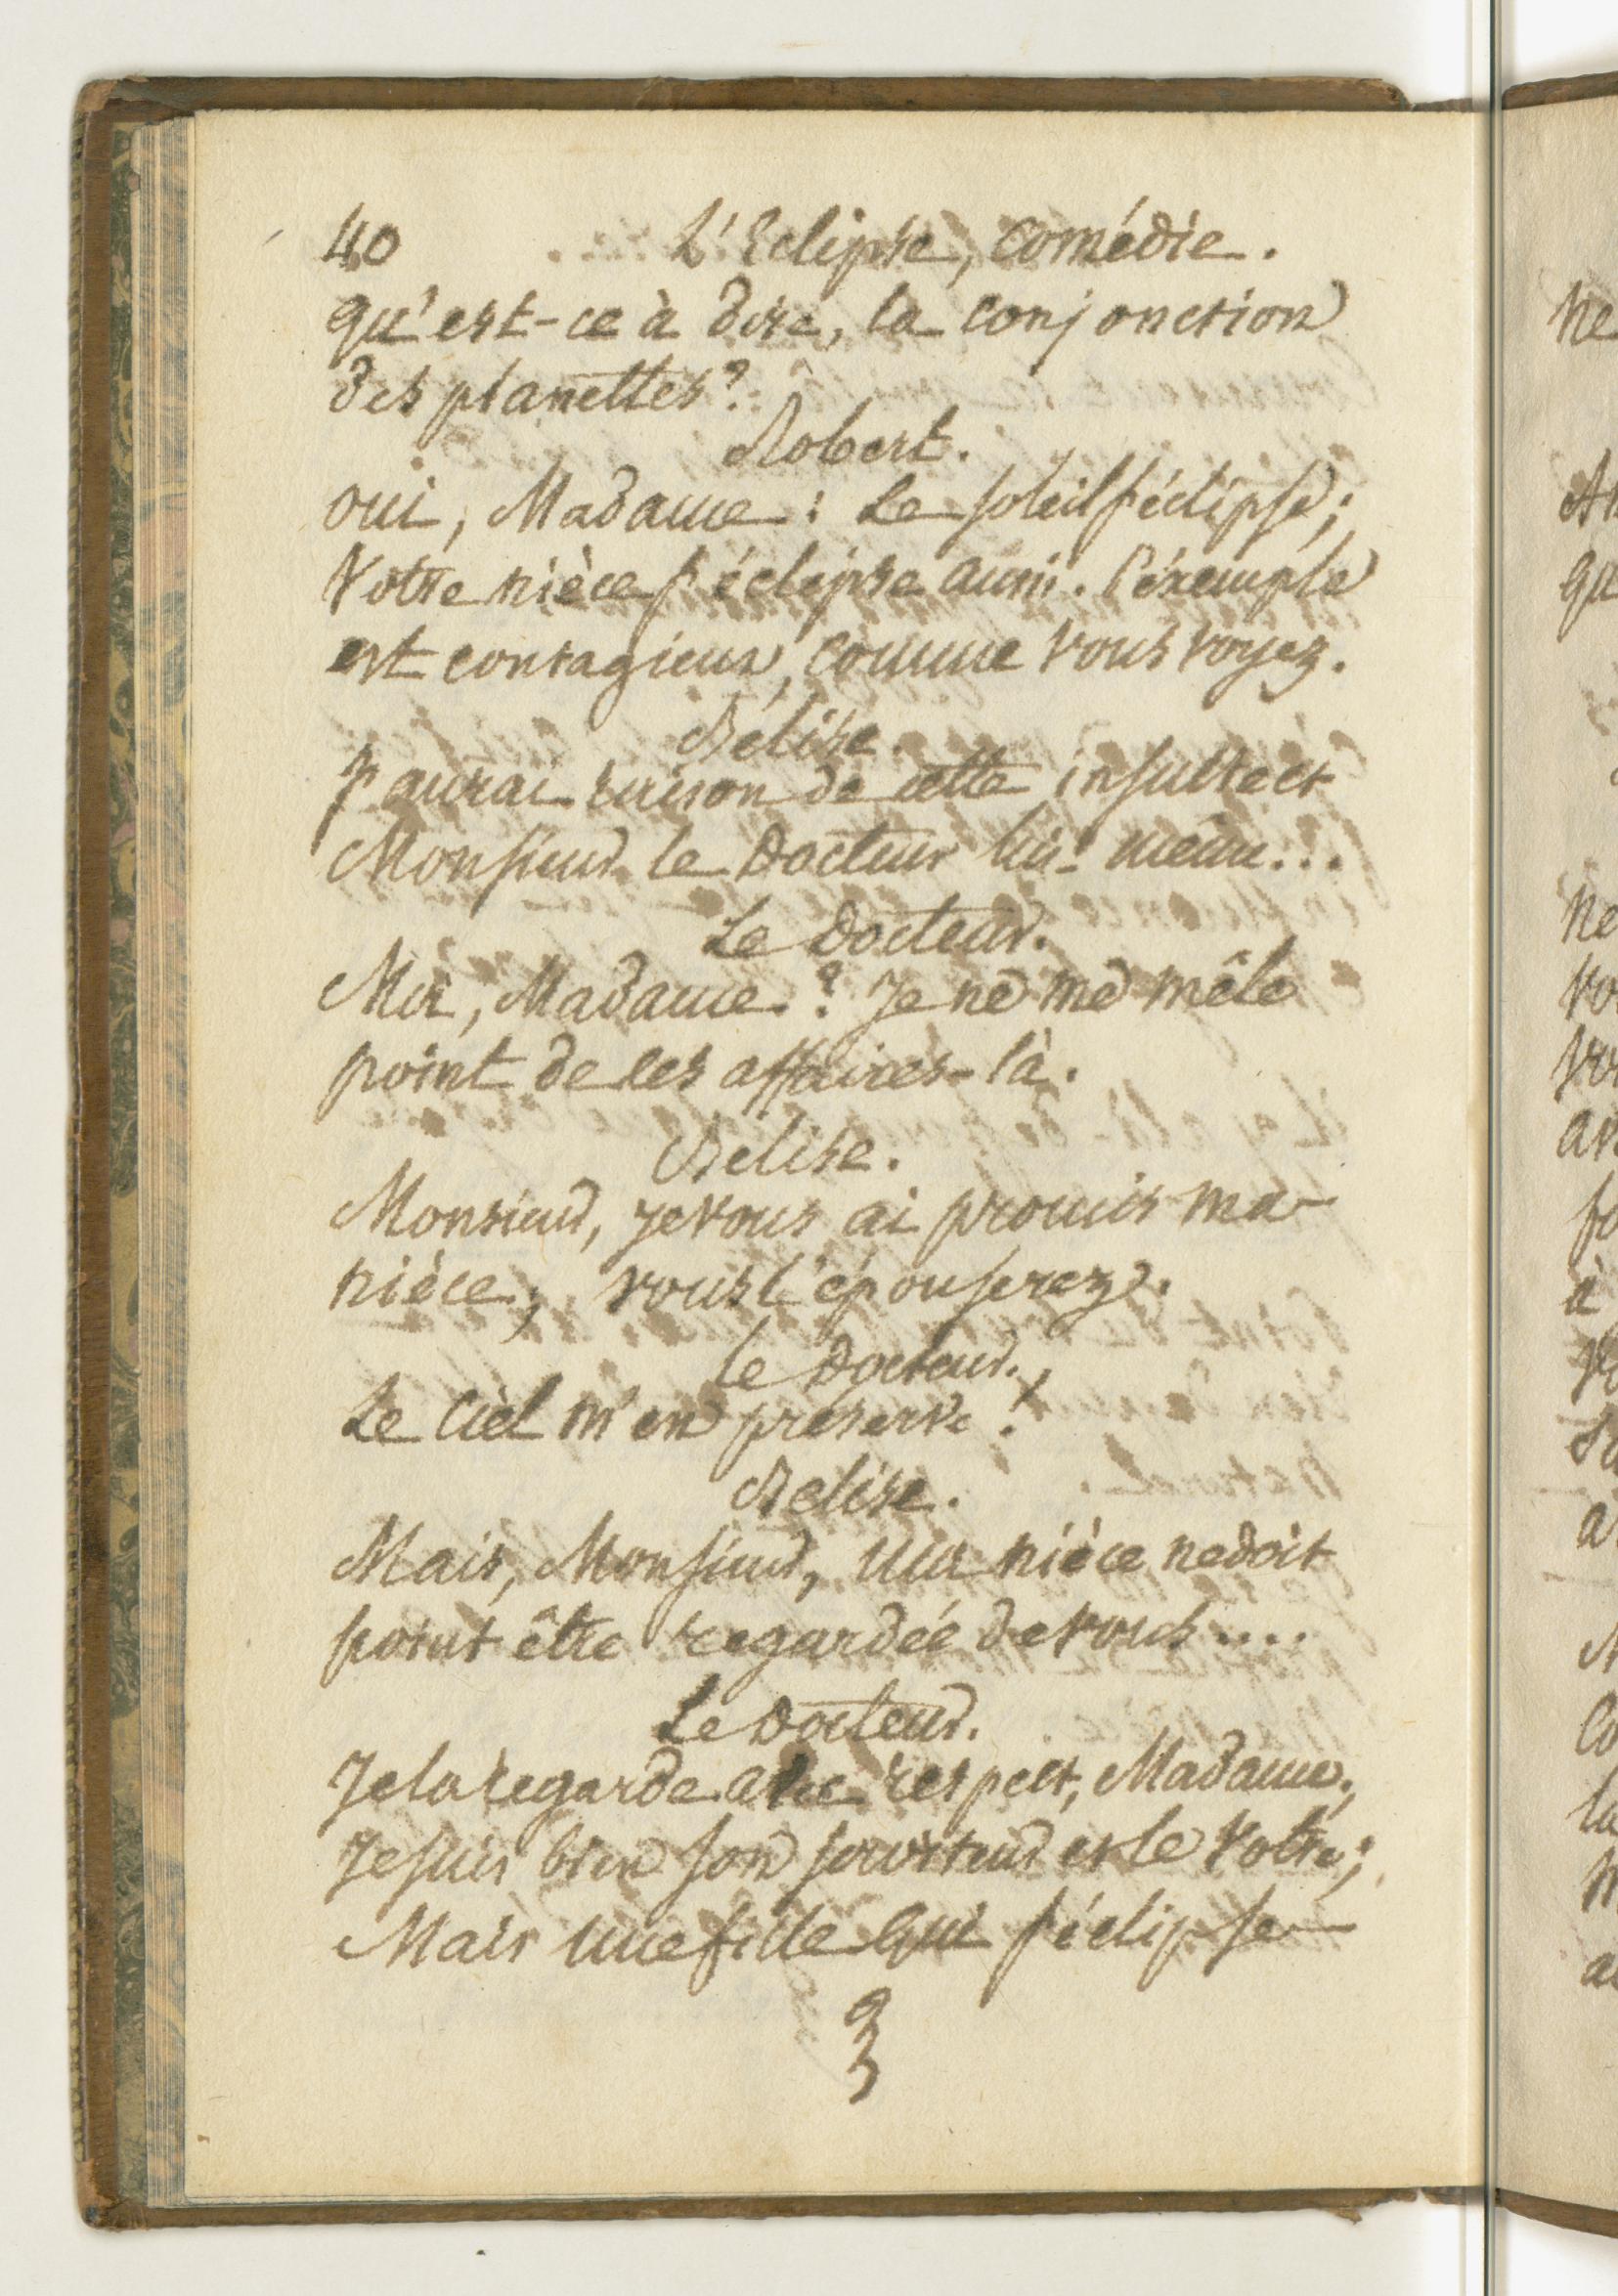 40 L'Eclipse, Comédie.
qu'est-ce à dire, la conjonction
des planettes?
Robert.
oui, Madame: Le soleil s'éclipse;
Votre nièce s'éclipse aussi. l'éxemple
est contagieux, comme vous voyez.
Bélise.
J'aurai raison de cette insulte et
Monsieur le Docteur lui-même...
Le Docteur.
Moi, Madame? Je ne me mêle
point de ces affaires-là.
Belise.
Monsieur, je vous ai promis ma
nièce; vous l'épouserez.
le Docteur.
Le Ciel m'en préserve!
Belise.
Mais, Monsieur, ma nièce ne doit
point être regardée de vous....
Le Docteur.
Je la regarde avec respect, Madame.
Je suis bien son serviteur et le votre;
Mais une fille qui s'éclipse